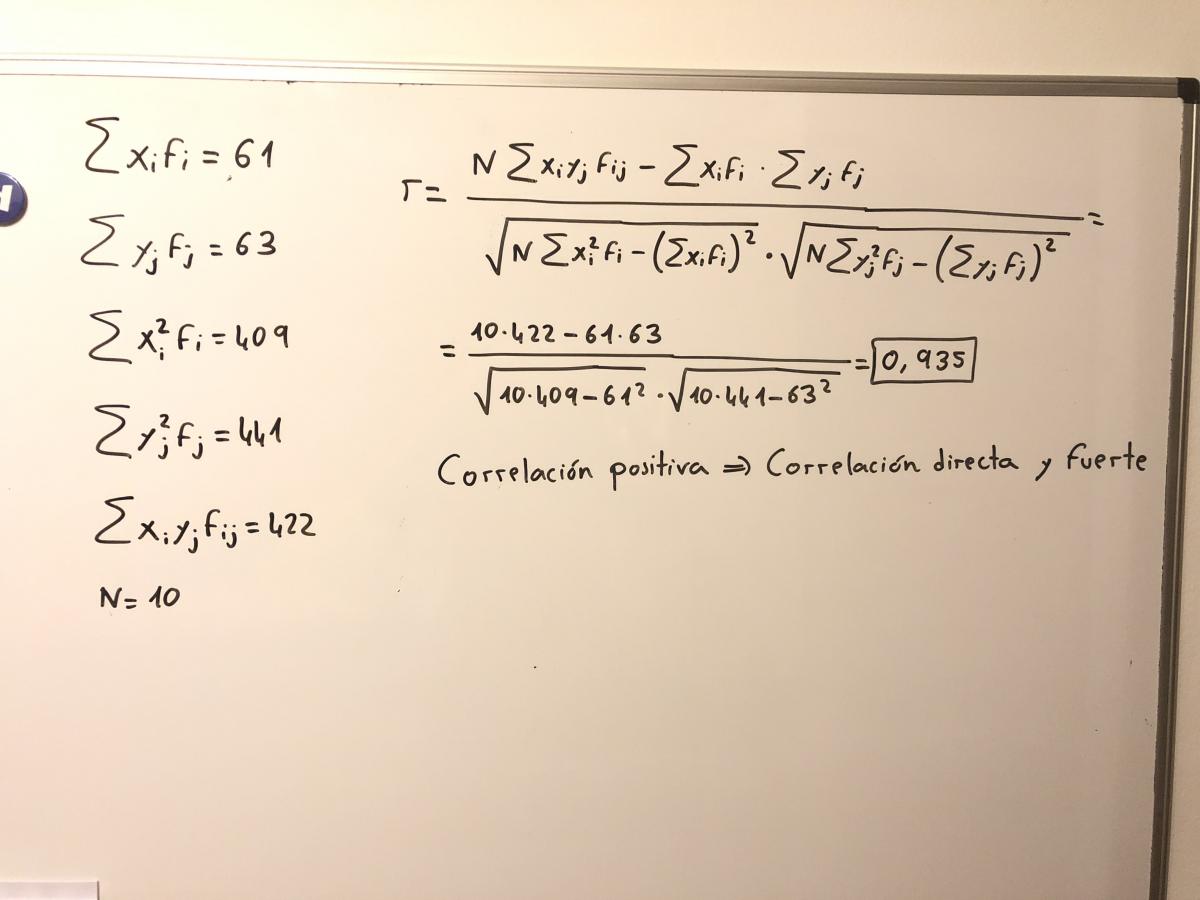 ∑ xᵢfᵢ = 61
∑ yⱼ fⱼ = 63
∑ xᵢ² fᵢ = 409
∑ yⱼ² fⱼ = 441
∑ xᵢ yⱼ fᵢⱼ = 422
N = 10
r = (N ∑ xᵢ yⱼ fᵢⱼ − ∑ xᵢfᵢ · ∑ yⱼ fⱼ) / (√(N ∑ xᵢ² fᵢ − (∑ xᵢfᵢ)²) · √(N ∑ yⱼ² fⱼ − (∑ yⱼ fⱼ)²)) =
= (10·422 − 61·63) / (√(10·409 − 61²) · √(10·441 − 63²)) = 0,935
Correlación positiva ⇒ Correlación directa y fuerte